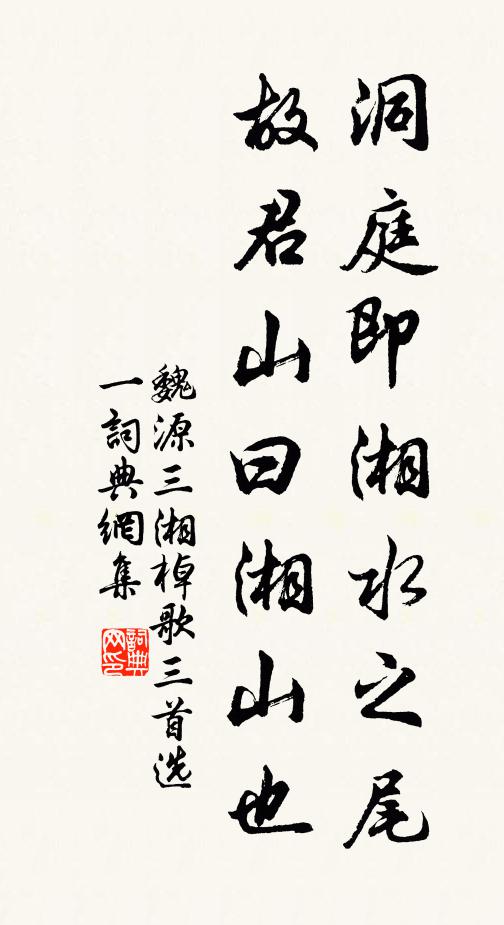 洞庭即湘水之尾
故君山曰湘山也
魏源三湘棹歌三首选
一詞典網集
詞典网印